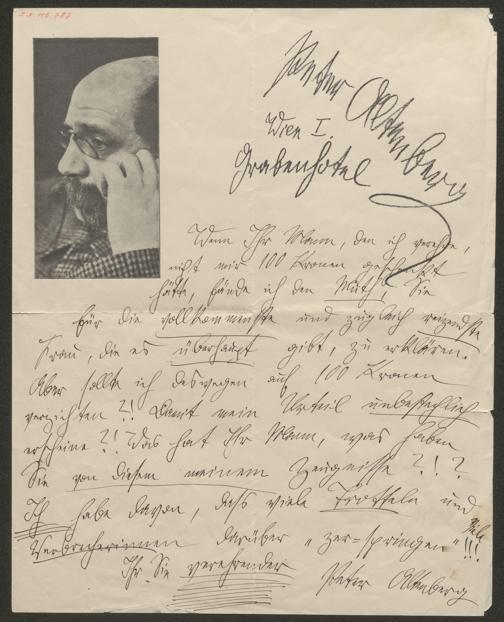 Peter Altenberg
Wien I.
Grabenhotel
Wenn Ihr Mann, den ich verehre,
nicht mir 100 Kronen geschenkt
hätte, fände ich den Muth, Sie
für die vollkommenste und zugleich reizendste
Frau, die es überhaupt gibt, zu erklären.
Aber sollte ich deswegen auf 100 Kronen
verzichten?! Damit mein Urteil unbestechlich
erscheine?! Was hat Ihr Mann, was haben
Sie von diesem meinem Zeugnisse?!?
Ich habe davon, dass viele Trotteln und
viele
Verbrecherinnen darüber „zer-springen"!!!
Ihr Sie verehrender
Peter Altenberg